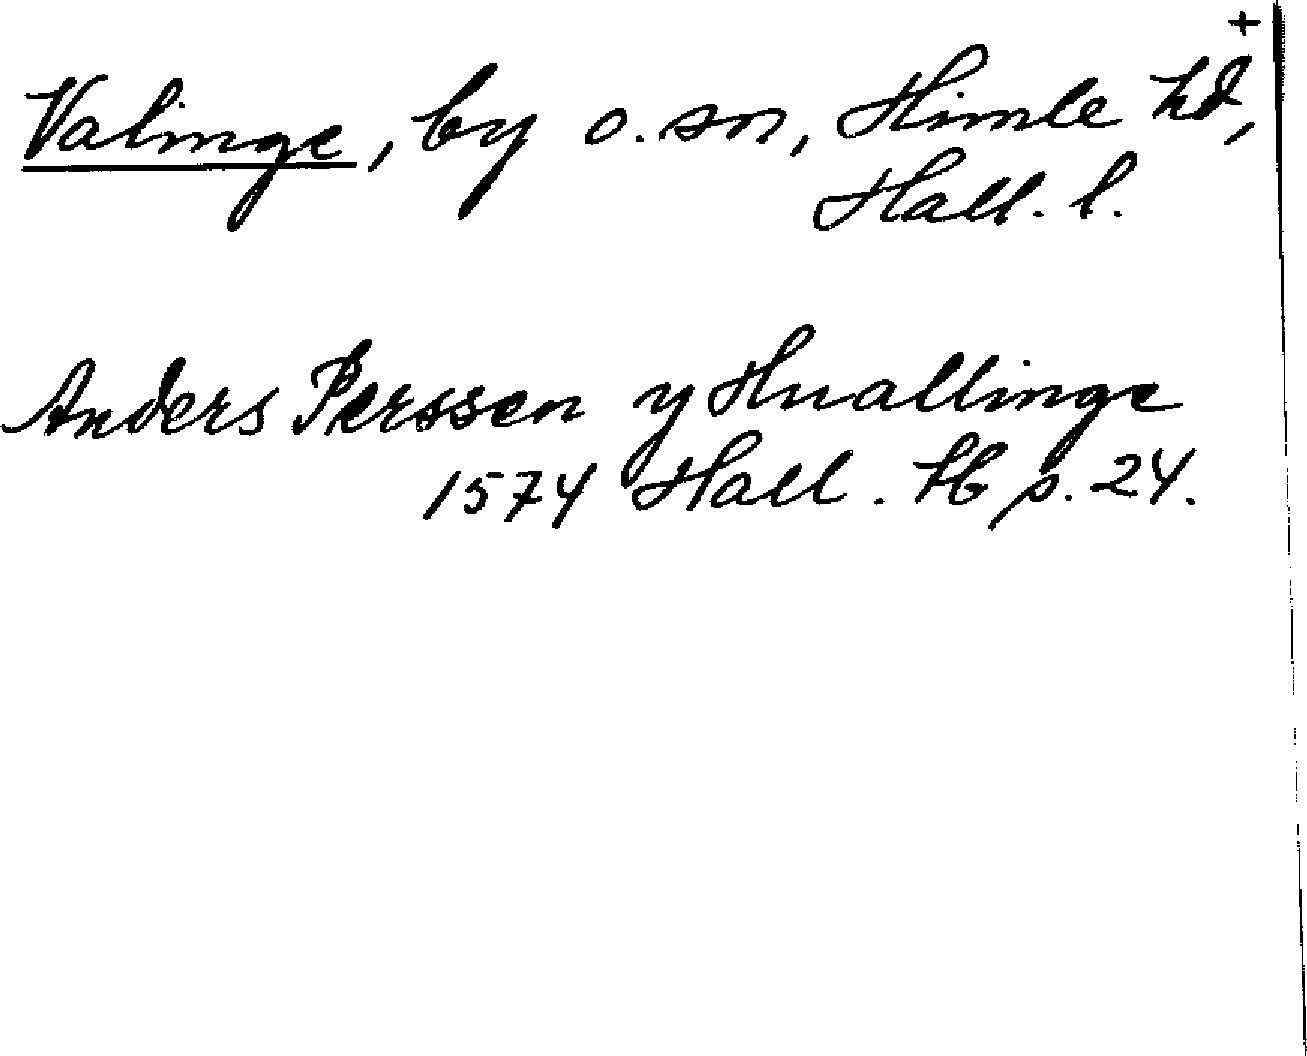 +
Valinge, by o. sn, Himle hd,
Hall. l.
Anders Perssen y Huallinge
1574 Hall. Hb p. 24.